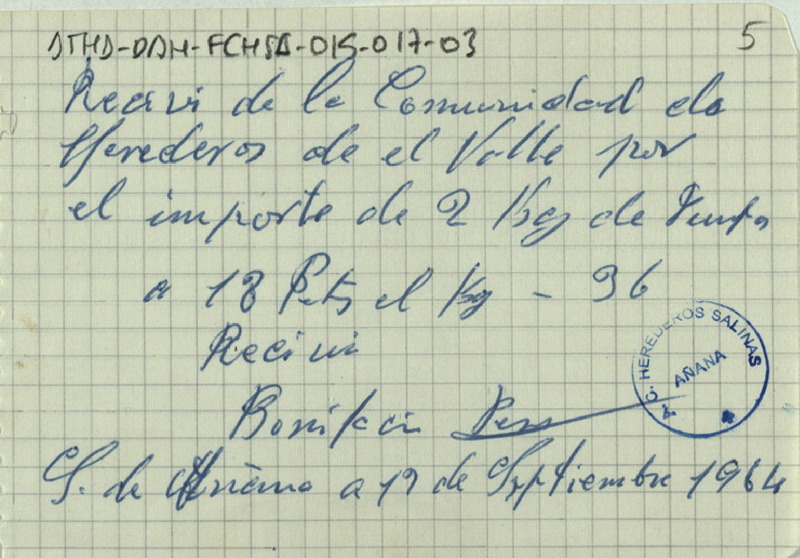 ATHA-DAH-FCHSA-015-017-03
5
Recivi de la Comunidad de
Herederos de el Valle por
el importe de 2 Kg de Punta
a 18 Pts el Kg - 36
Recivi
Bonifacio
S. de Añana a 19 de Septiembre 1964
C. HEREDEROS SALINAS
AÑANA